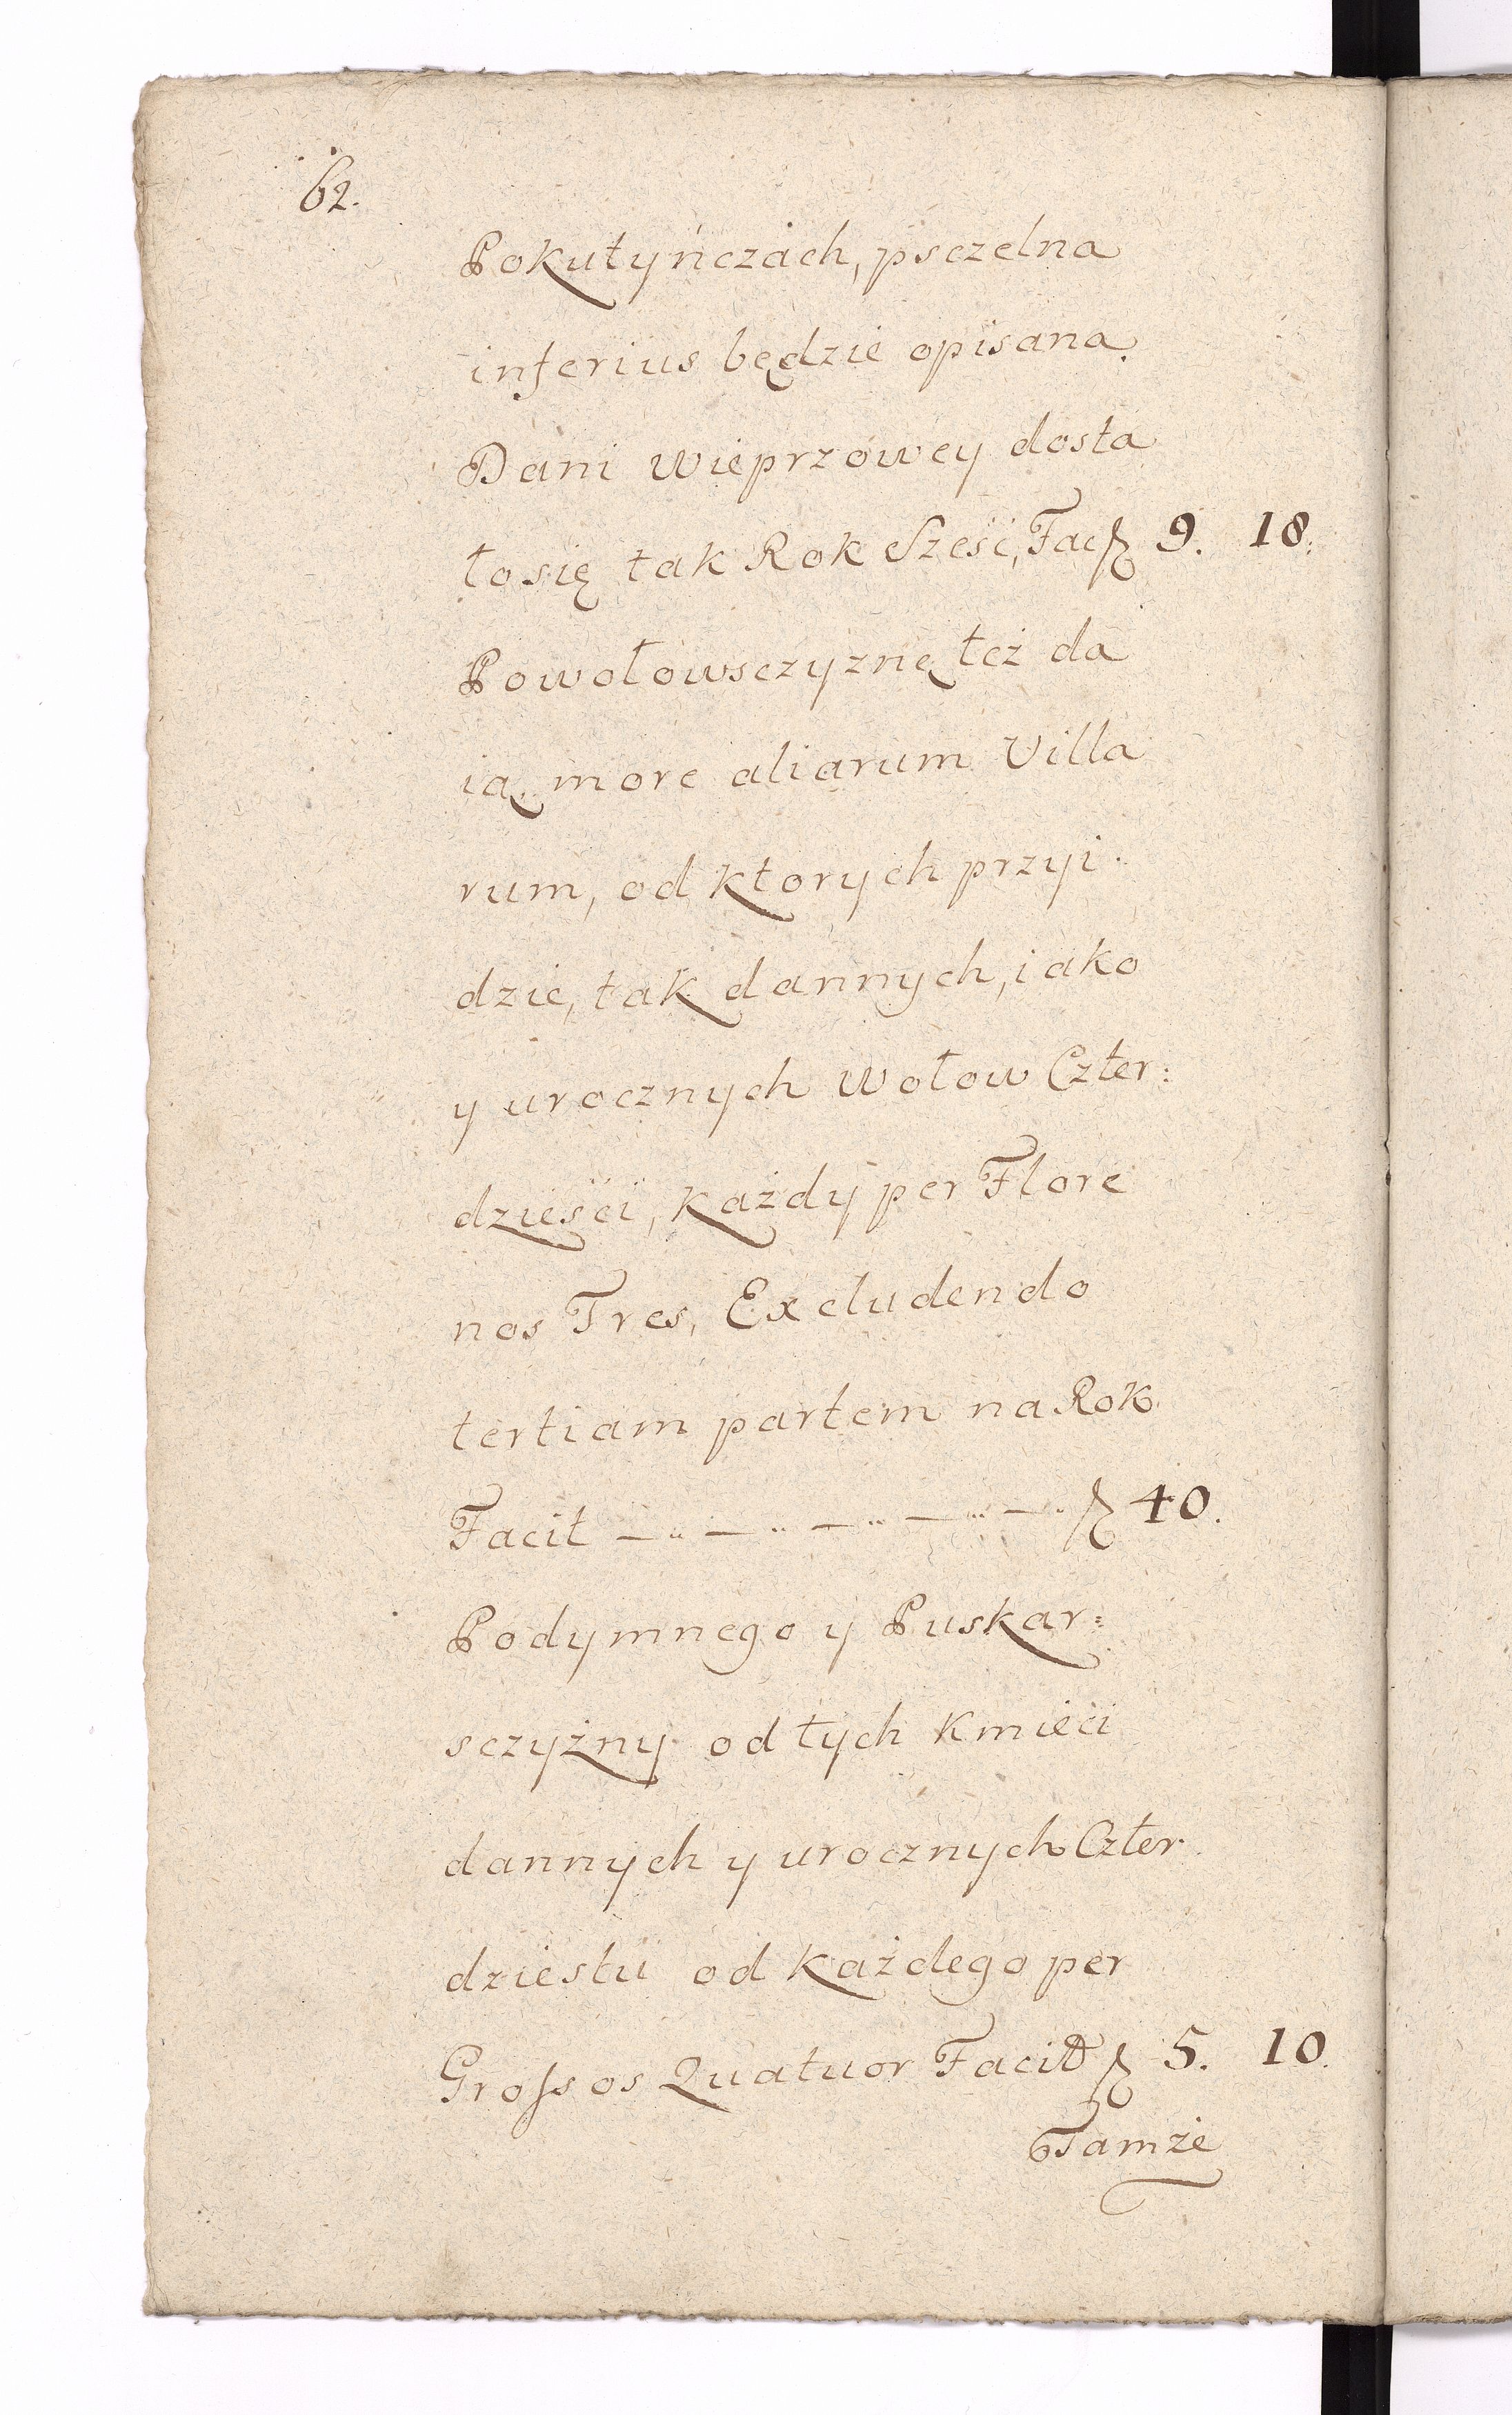 62.
Pokutyńczach, psczelna
inferius będzie opisana.
Dani wieprzowey dosta
ło się tak Rok Sześć, Fac 9. 18.
Powołowsczyznę też da
ią more aliarum Villa
rum, od ktorych przyi
dzie, tak dannych, iako
y urocznych wołow Czter:
dzieści, każdy per Flore
nos Tres, Excludendo
tertiam partem na Rok
Facit 40.
Podymnego y Puskar:
sczyzny od tych kmieci
dannych y urocznych Czter
dziestu od każdego per
Grossos Quatuor Facit 5. 10.
Tamże